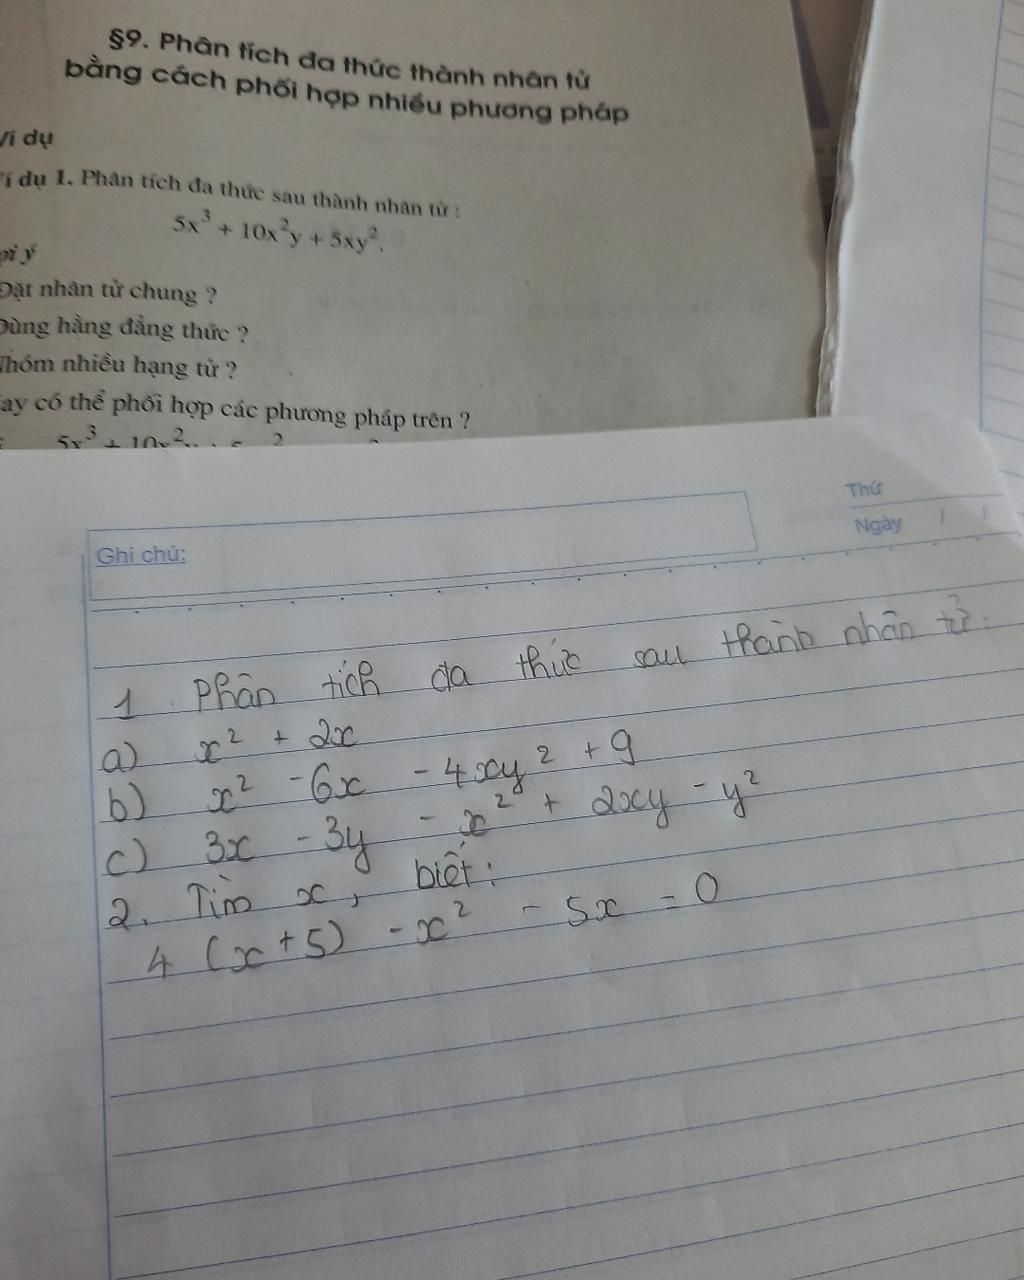 §9. Phân tích đa thức thành nhân tử
bằng cách phối hợp nhiều phương pháp
Ví dụ
Ví dụ 1. Phân tích đa thức sau thành nhân tử :
5x³ + 10x²y + 5xy².
ợi ý
Đặt nhân tử chung ?
Dùng hằng đẳng thức ?
Nhóm nhiều hạng tử ?
ay có thể phối hợp các phương pháp trên ?
5x³ + 10x²y
Thứ
Ghi chú:
Ngày / /
1. Phân tích đa thức sau thành nhân tử:
a) x² + 2x
b) x² - 6x - 4xy² + 9
c) 3x - 3y - x² + 2xy - y²
2. Tìm x, biết:
4 (x + 5) - x² - 5x = 0